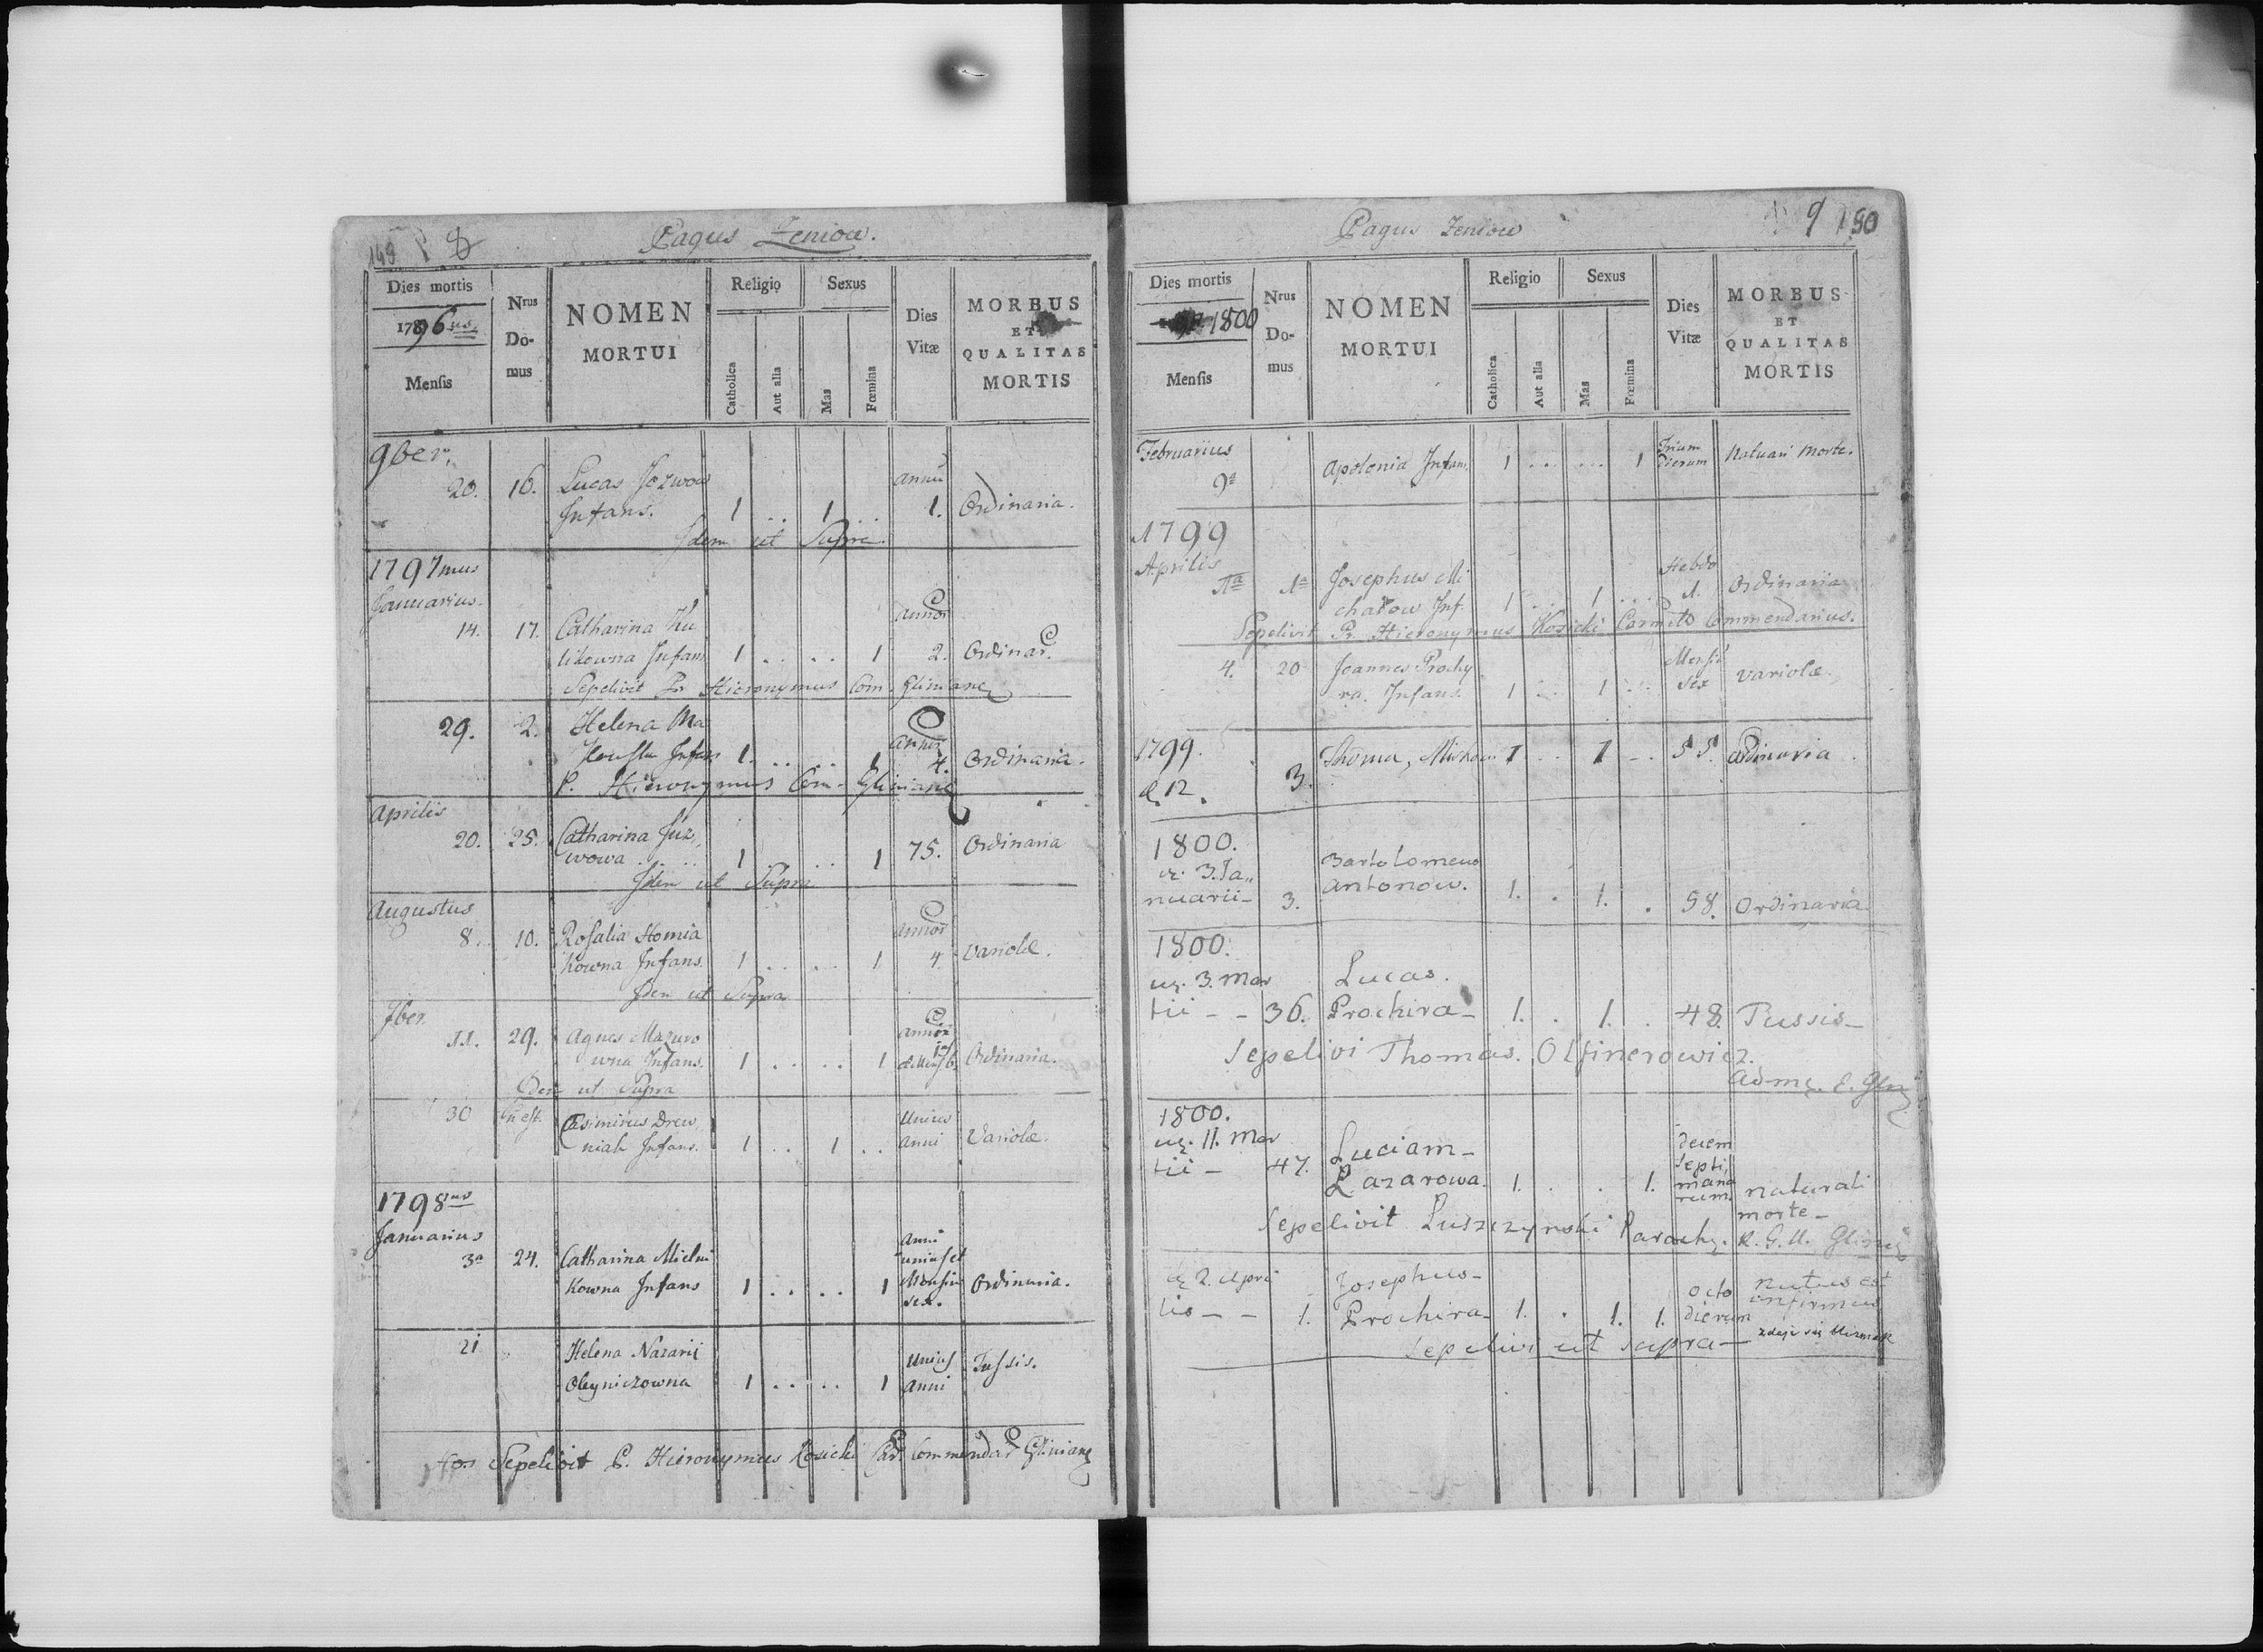 149 8
Pagus Zeniow.
Dies mortis
1796us
Mensis
Nrus Do-mus
NOMEN MORTUI
Religio
Catholica
Aut alia
Sexus
Mas
Fœmina
Dies Vitæ
MORBUS ET QUALITAS MORTIS
9ber.
20. 16. Lucas Jozwow
Infans. 1 .. 1 .. annu 1. Ordinaria.
Idem ut Supra
1797mus
Januarius.
14. 17. Catharina Ku
likowna Infans 1 .. .. 1 annor 2. Ordinar.
Sepelivit Pr Hieronymus Com. Glinian
29. 2. Helena Ma
Infans 1 .. .. 1 annor 4. Ordinaria.
P. Hieronymus Com. Glinian
Aprilis
20. 25. Catharina Juz,,
wowa .. .. 1 .. .. 1 75. Ordinaria
Idem ut Supra
Augustus
8. 10. Rosalia Homia
kowna Infans. 1 .. .. 1 annor 4. Variolæ.
Idem ut Supra
7ber.
11. 29. Agnes Mazuro
wna Infans. 1 .. .. 1 annor Ordinaria.
Idem ut Supra
30 Casimirus Drew,
niak Infans. 1 .. 1 .. Unius anni Variolæ.
1798us
Januarius
3a 24. Catharina Mielni
kowna Infans 1 .. .. 1 Anni unius et Mensiu sex. Ordinaria.
21 Helena Nazarij
Oleyniczowna 1 .. .. 1 Unius Anni Tussis.
Hos Sepelivit P. Hieronymus Kosicki Car. Commendar Glinian
9 150
Pagus Zeniow
Dies mortis
1800
Mensis
Nrus Do-mus
NOMEN MORTUI
Religio
Catholica
Aut alia
Sexus
Mas
Fœmina
Dies Vitæ
MORBUS ET QUALITAS MORTIS
Februarius
9a Apolonia Infans 1 .. .. 1 Trium Dierum Naturali Morte.
1799
Aprilis
1a 1a Josephus Mi
chalow Inf. 1 .. 1 .. Hebdo 1. Ordinaria
Sepelivit Pr. Hieronymus Kosicki Carmelto Commendarius.
4. 20 Joannes Prochy
ra. Infans. 1 .. 1 .. Mensiu sex Variolæ.
1799.
d. 12. 3. Thoma, 1 .. 1 .. 55. Ordinaria.
1800.
3. Ja,, Bartolomeus
nuarii - 3. Antonow. 1. . 1. . 58. Ordinaria
1800.
3. Mar Lucas.
tii - - 36. Prochira - 1. . 1. . 48. Tussis -
Sepelivi Thomas. Olfinerowicz.
Adm. E. Gln
1800.
11. Mar
tii - 47. Luciam -
Lazarowa. 1. . . 1. decem septi,manarum. naturali morte -
Sepelivit Luszczynski Paroch. R. G. U. Glin
2. Apri Josephus -
lis - - 1. Prochira - 1. . 1. 1. octo dierum natus est infirmus
Sepelivi ut supra -